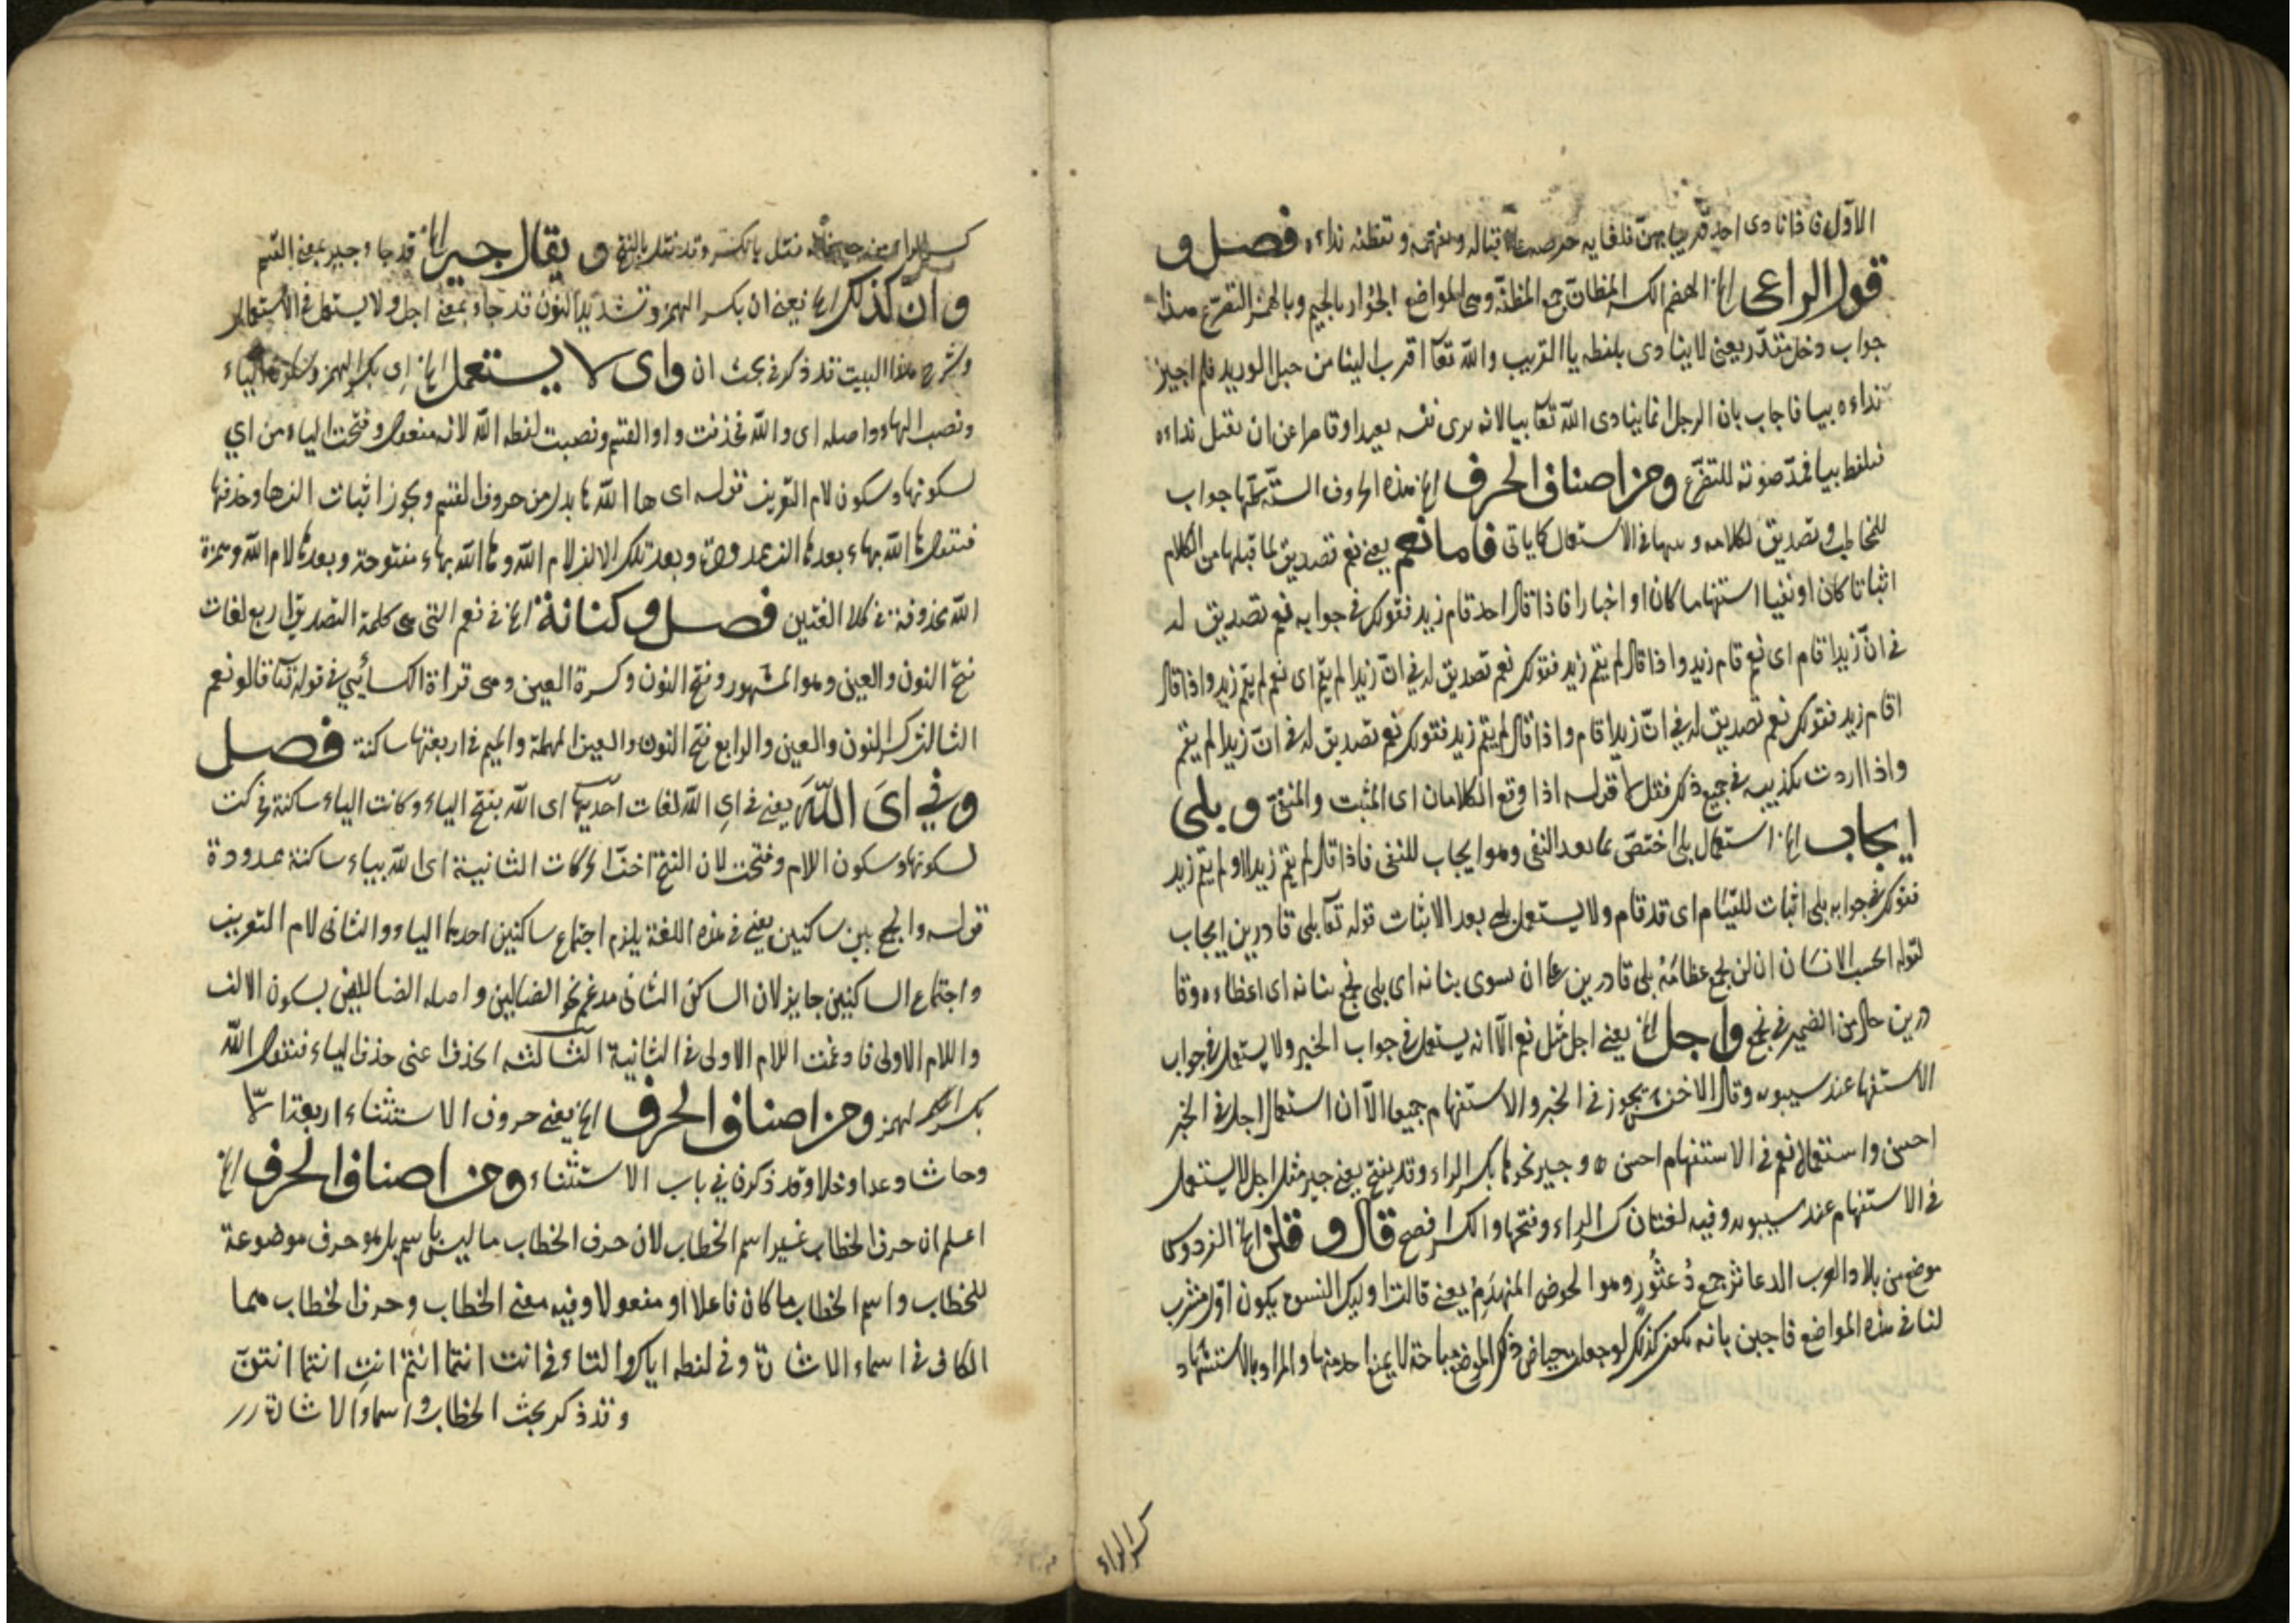 الاول فاذا نادى احد قريبا بهن فلغاية حرصه على اقباله وتفهمه وتفطنه نداءه فصل و
قول الراعى الخ الهضم الكسر المظان جمع المظنة وهى المواضع الجؤار بالجيم وبالهمز التضرع هذا
جواب دخل مقدر يعنى لا ينادى بلفظه يا القريب والله تعا اقرب الينا من حبل الوريد فلم اجيز
نداءه بيا فاجاب بان الرجل انما ينادى الله تعا بيا لانه يرى نفسه بعيدا وقاصرا عن ان يقبل نداءه
فيلفظ بيا فمد صوته للتضرع ومن اصناف الحرف الخ هذه الحروف الستة كلها جواب
للمخاطب وتصديق لكلامه و فى الاستعمال كما ياتى فاما نعم يعنى نعم تصديق لما قبلها من الكلام
اثباتا كان او نفيا استفهاما كان او اخبارا فاذا قال احد قام زيد فتقولك فى جوابه نعم تصديق له
فى ان زيدا قام اى نعم قام زيد واذا قال لم يقم زيد فقولك نعم تصديق له فى ان زيدا لم يقم اى نعم لم يقم زيد واذا قال
اقام زيد فقولك نعم تصديق له فى ان زيدا قام واذا قال الم يقم زيد فقولك نعم تصديق له فى ان زيدا لم يقم
واذا اردت تكذيبه فى جميع ذلك فقل لا قوله اذا وقع الكلامان اى المثبت والمنفى و بلى
ايجاب الخ استعمال بلى اختص بما بعد النفى وهو ايجاب للنفى فاذا قال لم يقم زيد او الم يقم زيد
فقولك فى جوابه بلى اثبات للقيام اى قد قام ولا يستعمل بلى بعد الاثبات قوله تعا بلى قادرين ايجاب
لقوله ايحسب الانسان ان لن نجمع عظامه بلى قادرين على ان نسوى بنانه اى بلى نجمع بنانه اى اعظاءه وقا
درين حال من الضمير فى نجمع واجل الخ يعنى اجل مثل نعم الا انه يستعمل فى جواب الخبر ولا يستعمل فى جواب
الاستفها عند سيبويه وقال الاخفش يجوز فى الخبر والاستفهام جميعا الا ان استعمال اجل فى الخبر
احسن واستعمال نعم فى الاستفهام احسن ه وجير نحوها بكسر الراء وقد يفتح يعنى جير مثل اجل لا يستعمل
فى الاستفهام عند سيبويه وفيه لغتان كسر الراء وفتحها والكسر افصح قال و قلن الخ الفردوكا
موضع من بلاد العرب الدعاثر جمع دعثور وهو الحوض المنهدم يعنى قالت اوليك النسوة يكون اول مشرب
لنا فى هذه المواضع فاجبن بانه يكون كذلك لو جعل حياض ذلك الموضع مباحة لا يمنع احد منها والمراد بالاستشهاد
كسر الراء
كسر الراء من فتقل بالكسر وقد تقل بالفتح و يقال جير الخ قد جاء جير بمعنى القسم
وان كذلك الخ يعنى ان بكسر الهمز وتشديد النون قد جاء بمعنى اجل ولا يستعمل فى الاستعمال
وشرح هذا البيت قد ذكر فى بحث ان واى لا يستعمل الخ اى بكسر الهمز وسكون الياء
ونصب الهاء واصله اى والله فحذفت واو القسم ونصبت لفظه الله لانه مفعول وفتحت الياء من اي
لسكونها وسكون لام التعريف قوله اى ها الله ها بدل من حروف القسم ويجوز اثبات الفها وحذفها
فتقول ها الله بهاء بعدها الف ممدودة وبعد تلك الالف لام الله وها الله بهاء مفتوحة وبعدها لام الله وهمزة
الله محذوفة فى كلا الغتين فصل و كنانة الخ فى نعم التى هى كلمة التصديق اربع لغات
فتح النون والعين وهو المشهور وفتح النون وكسرة العين وهى قراءة الكسائي فى قوله تعا قالو نعم
الثالث كسر النون والعين والرابع فتح النون والعين المهملة والميم فى اربعتها ساكنة فصل
وفي اى الله يعنى فى اي الله لغات احديها اى الله بفتح الياء وكانت الياء ساكنة فحركت
لسكونها وسكون اللام وفتحت لان الفتح اخف الحركات الثانية اى الله بياء ساكنة ممدودة
قوله والجمع بين ساكنين يعنى فى هذه اللغة يلزم اجتماع ساكنين احدهما الياء والثانى لام التعريف
واجتماع الساكنين جايز لان الساكن الثانى مدغم نحو الضالين واصله الضاللين بسكون الالف
واللام الاولى فادغمت اللام الاولى فى الثانية الثالثه الحذف اعنى حذف الياء فتقول الله
بكسر الهمز ومن اصناف الحرف الخ يعنى حروف الاستثناء اربعة الا
وحاشا وعدا وخلا وقد ذكرن في باب الاستثناء ومن اصناف الحرف الخ
اعلم ان حرف الخطاب غير اسم الخطاب لان حرف الخطاب ما ليس باسم بل هو حرف موضوعة
للخطاب واسم الخطاب ما كان فاعلا او مفعولا وفيه معنى الخطاب وحرف الخطاب هما
الكاف فى اسماء الاشارة وفى لفظه اياك والتاء فى انت انتما انتم انت انتما انتن
وقد ذكر بحث الخطاب واسماء الاشارة